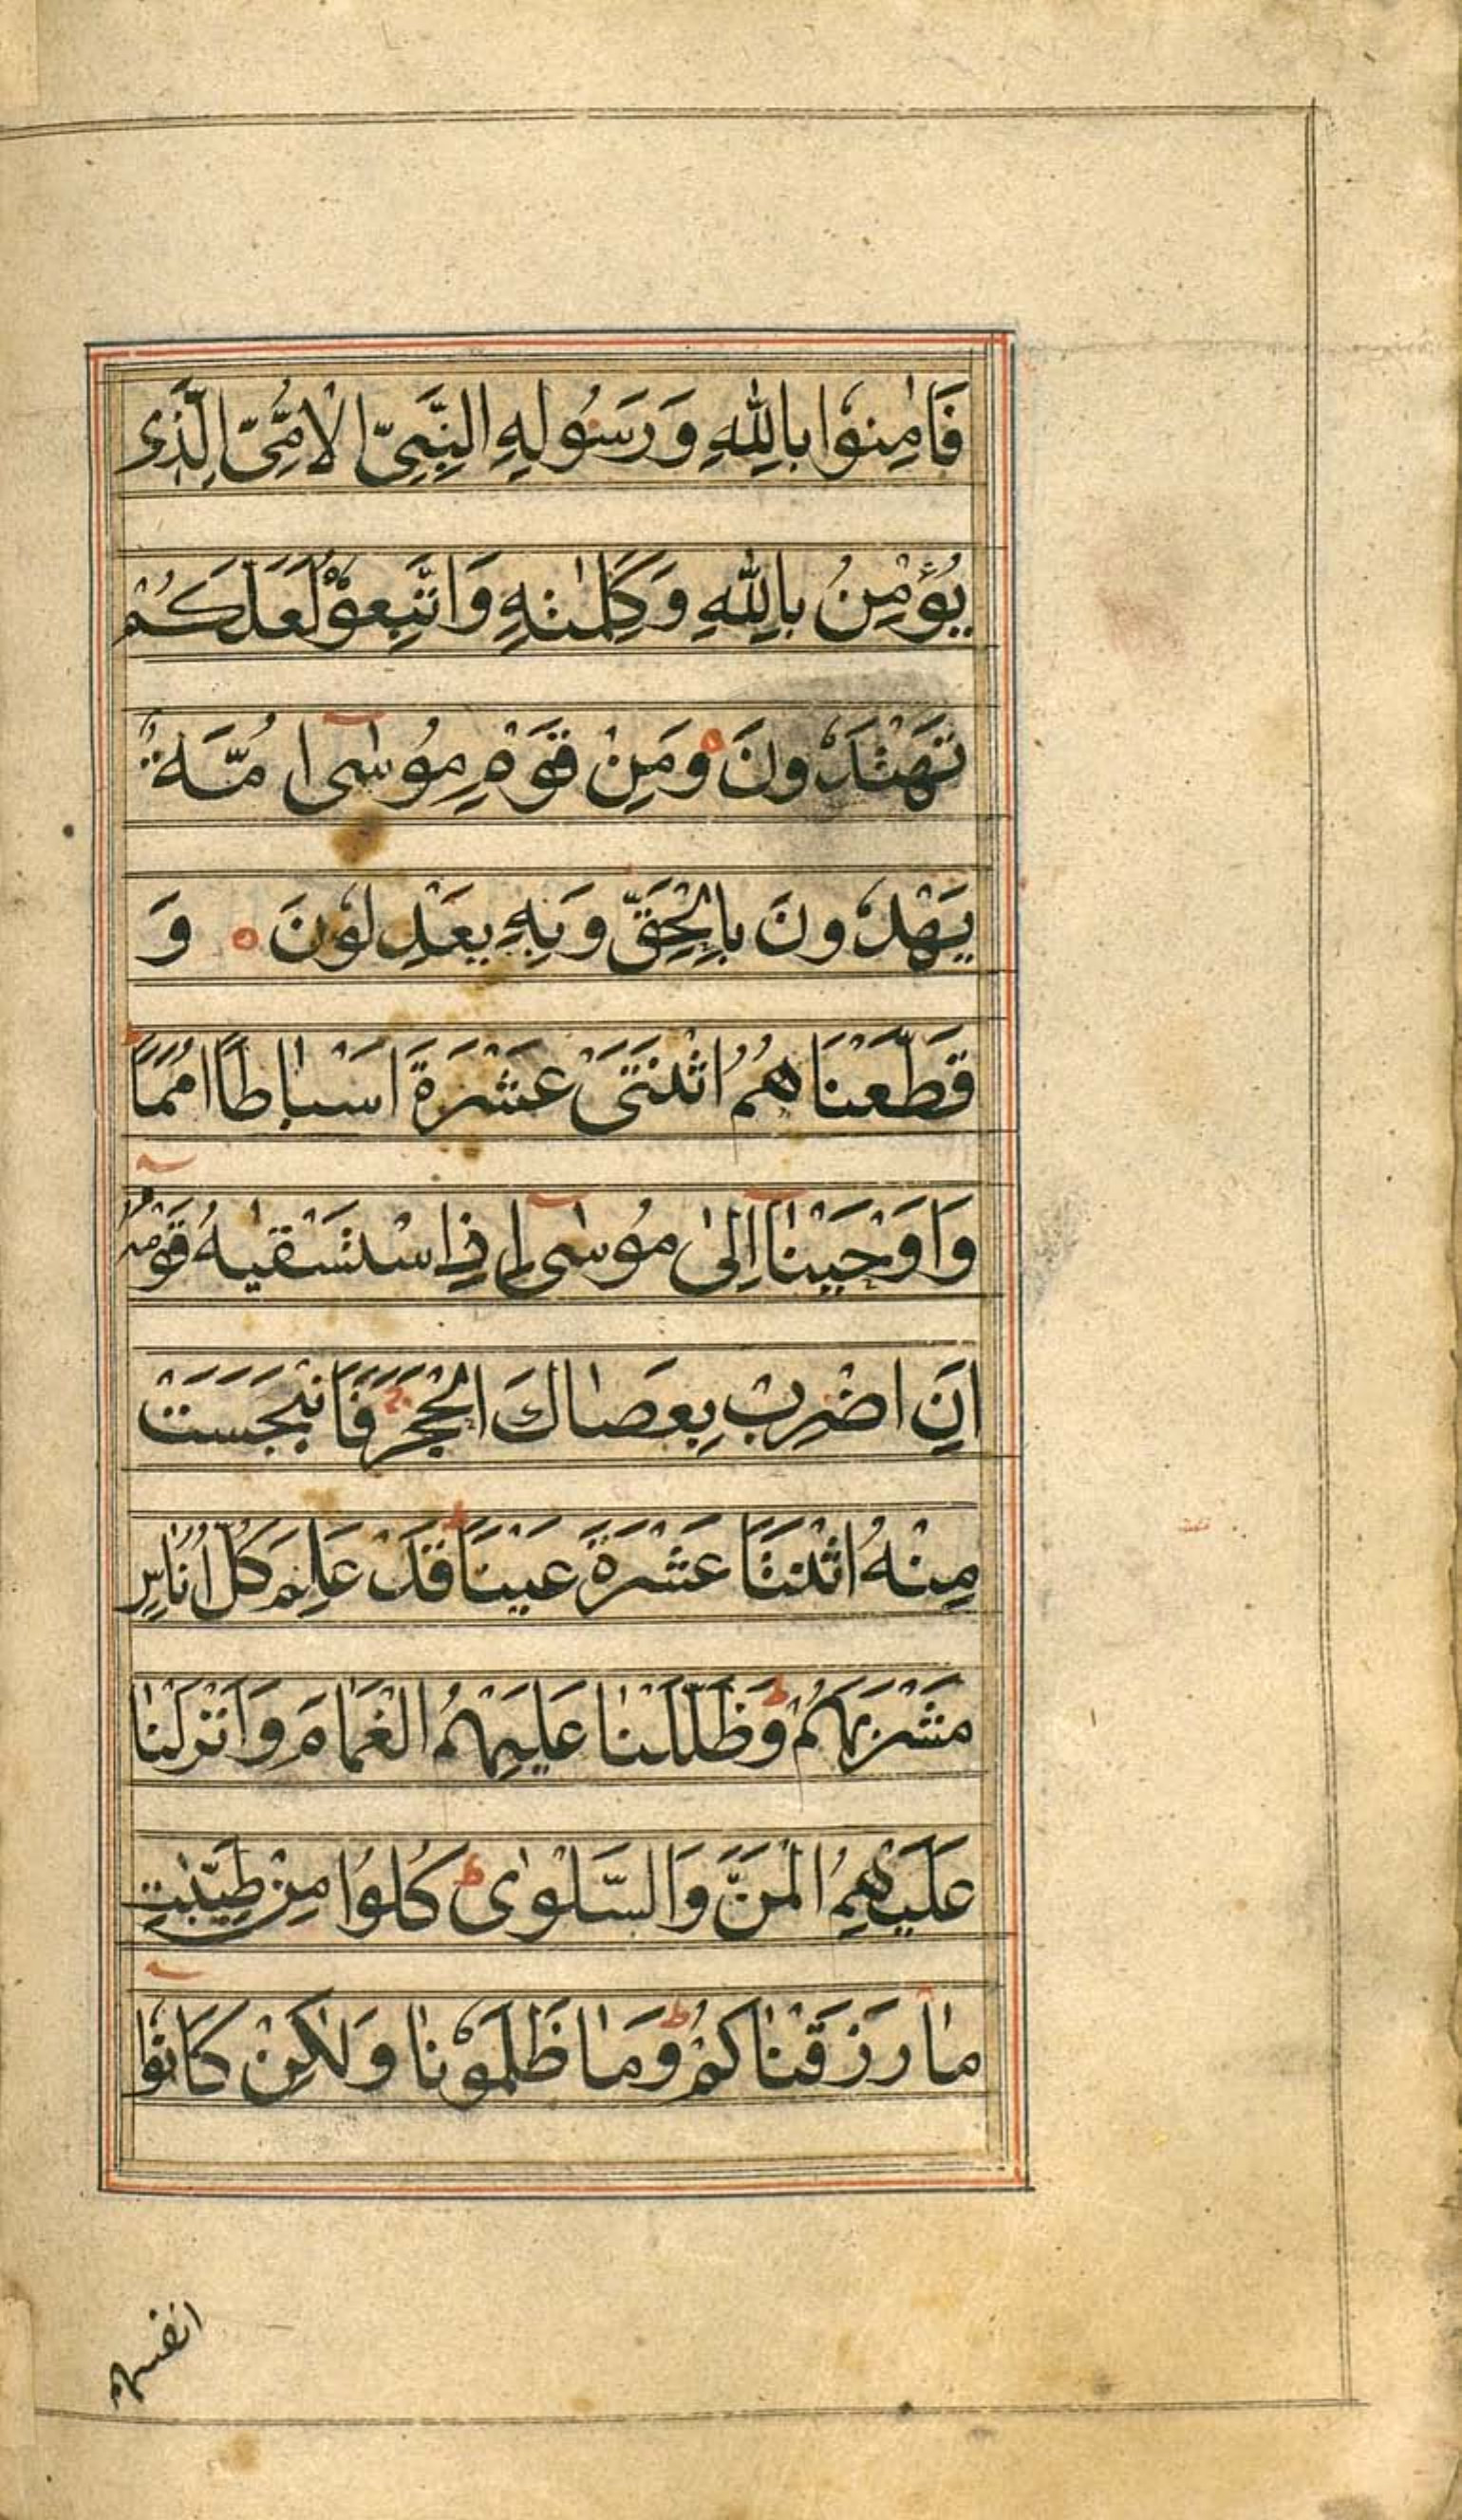 فَاٰمِنُوا بِاللّٰهِ وَرَسُولِهِ النَّبِىِّ الْاُمِّىِّ الَّذِى
يُؤْمِنُ بِاللّٰهِ وَكَلِمٰتِهِ وَاتَّبِعُوْهُ لَعَلَّكُمْ
تَهْتَدُونَ وَمِنْ قَوْمِ مُوسٰى اُمَّةٌ
يَهْدُونَ بِالْحَقِّ وَبِهِ يَعْدِلُوْنَ وَ
قَطَّعْنَاهُمُ اثْنَتَىْ عَشْرَةَ اَسْبَاطًا اُمَمًا
وَاَوْحَيْنَا اِلٰى مُوسٰى اِذِ اسْتَسْقٰيهُ قَوْمُهُ
اَنِ اضْرِبْ بِعَصَاكَ الْحَجَرَ فَانْبَجَسَتْ
مِنْهُ اثْنَتَا عَشْرَةَ عَيْنًا قَدْ عَلِمَ كُلُّ اُنَاسٍ
مَشْرَبَهُمْ وَظَلَّلْنَا عَلَيْهِمُ الْغَمَامَ وَاَنْزَلْنَا
عَلَيْهِمُ الْمَنَّ وَالسَّلْوٰى كُلُوا مِنْ طَيِّبٰتِ
مَا رَزَقْنَاكُمْ وَمَا ظَلَمُوْنَا وَلٰكِنْ كَانُوْا
انفسهم